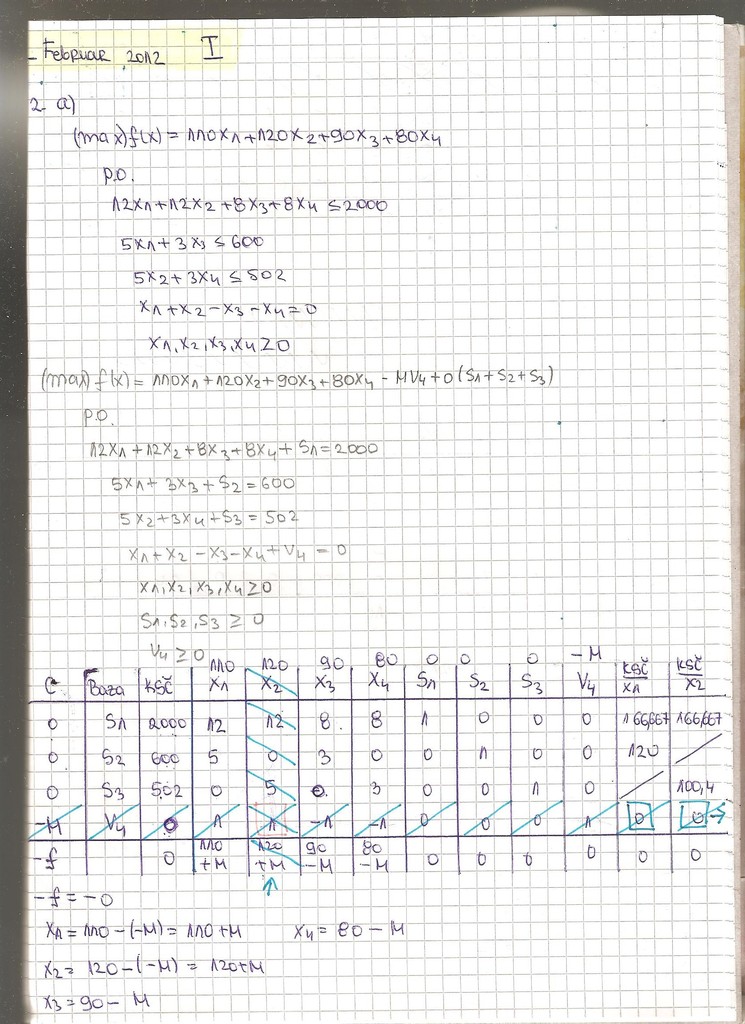 - Februar 2012 I
2. a)
(max) f(x) = 110x1 + 120x2 + 90x3 + 80x4
P.O.
12x1 + 12x2 + 8x3 + 8x4 ≤ 2000
5x1 + 3x3 ≤ 600
5x2 + 3x4 ≤ 502
x1 + x2 - x3 - x4 = 0
x1, x2, x3, x4 ≥ 0
(max) f(x) = 110x1 + 120x2 + 90x3 + 80x4 - MV4 + 0 (S1 + S2 + S3)
P.O.
12x1 + 12x2 + 8x3 + 8x4 + S1 = 2000
5x1 + 3x3 + S2 = 600
5x2 + 3x4 + S3 = 502
x1 + x2 - x3 - x4 + V4 = 0
x1, x2, x3, x4 ≥ 0
S1, S2, S3 ≥ 0
V4 ≥ 0
110 120 90 80 0 0 0 -M
C Baza KSČ x1 x2 x3 x4 S1 S2 S3 V4 KSČ/x1 KSČ/x2
0 S1 2000 12 12 8 8 1 0 0 0 166,667 166,667
0 S2 600 5 0 3 0 0 1 0 0 120
0 S3 502 0 5 0 3 0 0 1 0 100,4
-M V4 0 1 1 -1 -1 0 0 0 1 0 0 →
-f 0 110+M 120+M 90-M 80-M 0 0 0 0 0 0
↑
-f = -0
x1 = 110 - (-M) = 110 + M x4 = 80 - M
x2 = 120 - (-M) = 120 + M
x3 = 90 - M